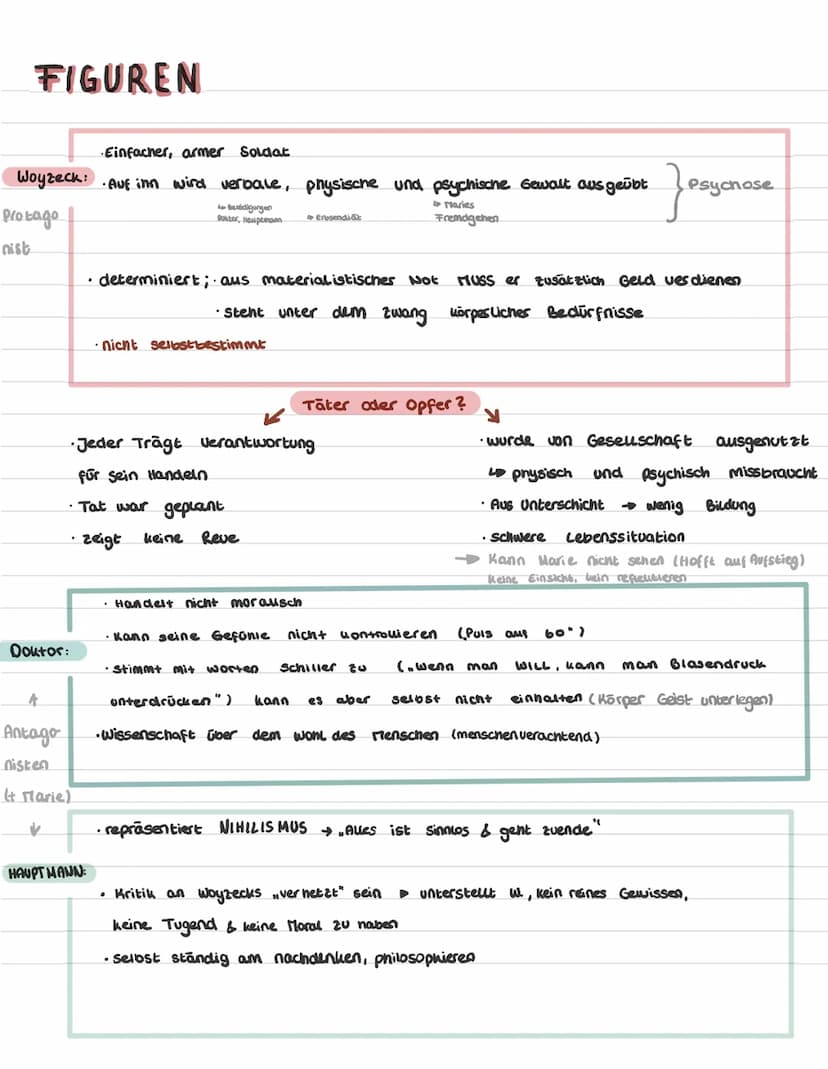 FIGUREN
· Einfacher, armer Soldat
Woyzeck:
· Auf ihn wird verbale, physische und psychische Gewalt ausgeübt } Psychose
↳ Beleidigungen
Doktor, Hauptmann
↳ Erbsendiät
↳ Maries
Fremdgehen
Protago
nist
· determiniert; · aus materialistischer Not MUSS er zusätzlich Geld verdienen
· steht unter dem Zwang körperlicher Bedürfnisse
· nicht selbstbestimmt
Täter oder Opfer?
· Jeder Trägt Verantwortung
für sein Handeln
· Tat war geplant
· zeigt keine Reue
· wurde von Gesellschaft ausgenutzt
↳ physisch und psychisch missbraucht
· Aus Unterschicht → wenig Bildung
· schwere Lebenssituation
→ Kann Marie nicht sehen (Hofft auf Aufstieg)
keine Einsicht, kein reflektieren
· Handelt nicht moralisch
· Kann seine Gefühle nicht kontrollieren (Puls auf 60")
Doktor:
· stimmt mit Worten Schiller zu („wenn man WILL, kann man Blasendruck
unterdrücken") kann es aber selbst nicht einhalten (Körper Geist unterlegen)
· Wissenschaft über dem Wohl des Menschen (menschenverachtend)
↑
Antago
nisten
(+ Marie)
↓
· repräsentiert NIHILISMUS → „Alles ist sinnlos & geht zuende"
HAUPTMANN:
· Kritik an Woyzecks „verhetzt" sein ▸ unterstellt W, kein reines Gewissen,
keine Tugend & keine Moral zu haben
· selbst ständig am nachdenken, philosophieren